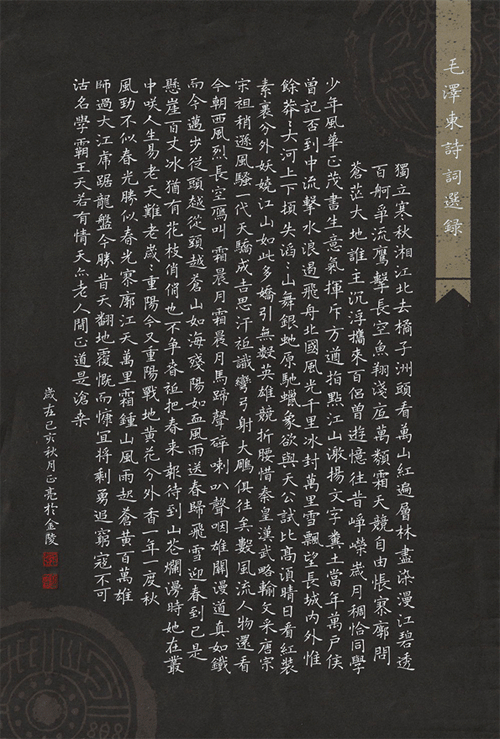 毛澤東詩詞選錄
獨立寒秋湘江北去橘子洲頭看萬山紅遍層林盡染漫江碧透
百舸爭流鷹擊長空魚翔淺底萬類霜天競自由悵寥廓問
蒼茫大地誰主沉浮攜來百侶曾遊憶往昔崢嶸歲月稠恰同學
少年風華正茂書生意氣揮斥方遒指點江山激揚文字糞土當年萬戶侯
曾記否到中流擊水浪遏飛舟北國風光千里冰封萬里雪飄望長城內外惟
餘莽〻大河上下頓失滔〻山舞銀蛇原馳蠟象欲與天公試比高須晴日看紅裝
素裹分外妖嬈江山如此多嬌引無數英雄競折腰惜秦皇漢武略輸文采唐宗
宋祖稍遜風騷一代天驕成吉思汗祗識彎弓射大鵰俱往矣數風流人物還看
今朝西風烈長空鴈叫霜晨月霜晨月馬蹄聲碎喇叭聲咽雄關漫道真如鐵
而今邁步從頭越從頭越蒼山如海殘陽如血風雨送春歸飛雪迎春到已是
懸崖百丈冰猶有花枝俏俏也不爭春祗把春來報待到山花爛漫時她在叢
中咲人生易老天難老歲〻重陽今又重陽戰地黃花分外香一年一度秋
風勁不似春光勝似春光寥廓江天萬里霜鍾山風雨起蒼黃百萬雄
師過大江虎踞龍盤今勝昔天翻地覆慨而慷宜將剩勇追窮寇不可
沽名學霸王天若有情天亦老人間正道是滄桑
歲在己亥秋月正亮於金陵